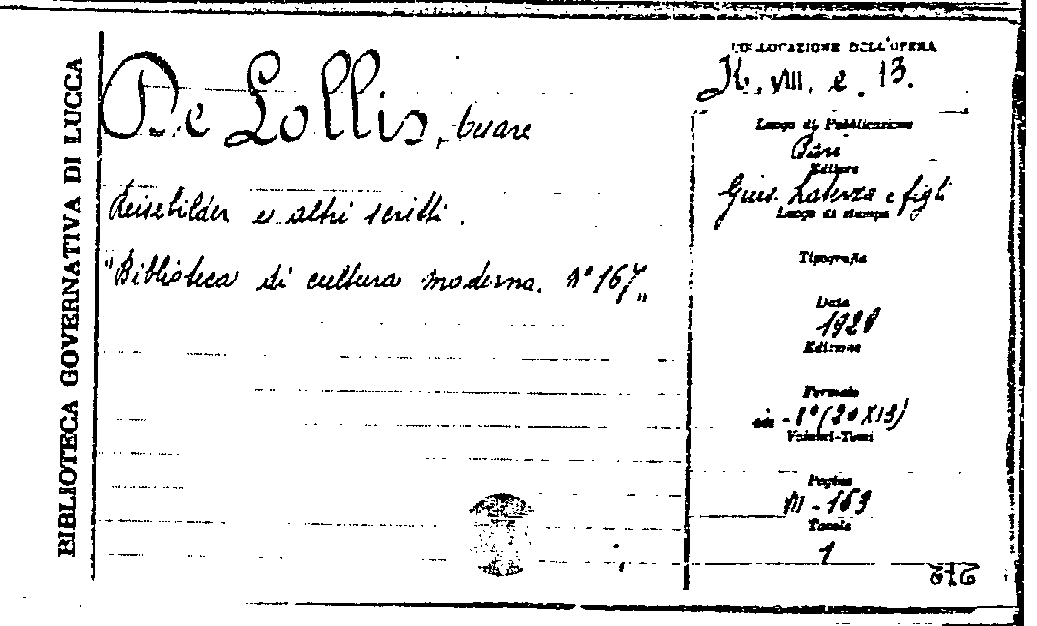 BIBLIOTECA GOVERNATIVA DI LUCCA
De Lollis, Cesare
Reisebilder e altri scritti.
"Biblioteca di cultura moderna. N° 167"
COLLOCAZIONE DELL'OPERA
VIII. e. 13.
Luogo di Pubblicazione
Bari
Editore
Gius. Laterza e figli
Luogo di stampa
Tipografia
Data
Edizione
Formato
in-8° (20X13)
Volumi-Tomi
Pagine
VII-169
Tavole
1